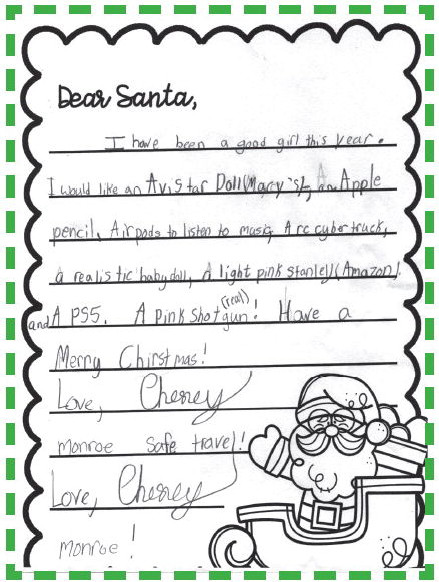 Dear Santa,
I have been a good girl this year.
I would like an Avi Star Doll(Macy's), an Apple
pencil, Airpods to listen to music, A rc cyber truck,
a realistic baby doll, A light pink stanley(Amazon).
and A PS5. A pink shot gun! (real) Have a
Merry Chirstmas!
Love, Cheney
monroe safe travel!
Love, Cheney
monroe!